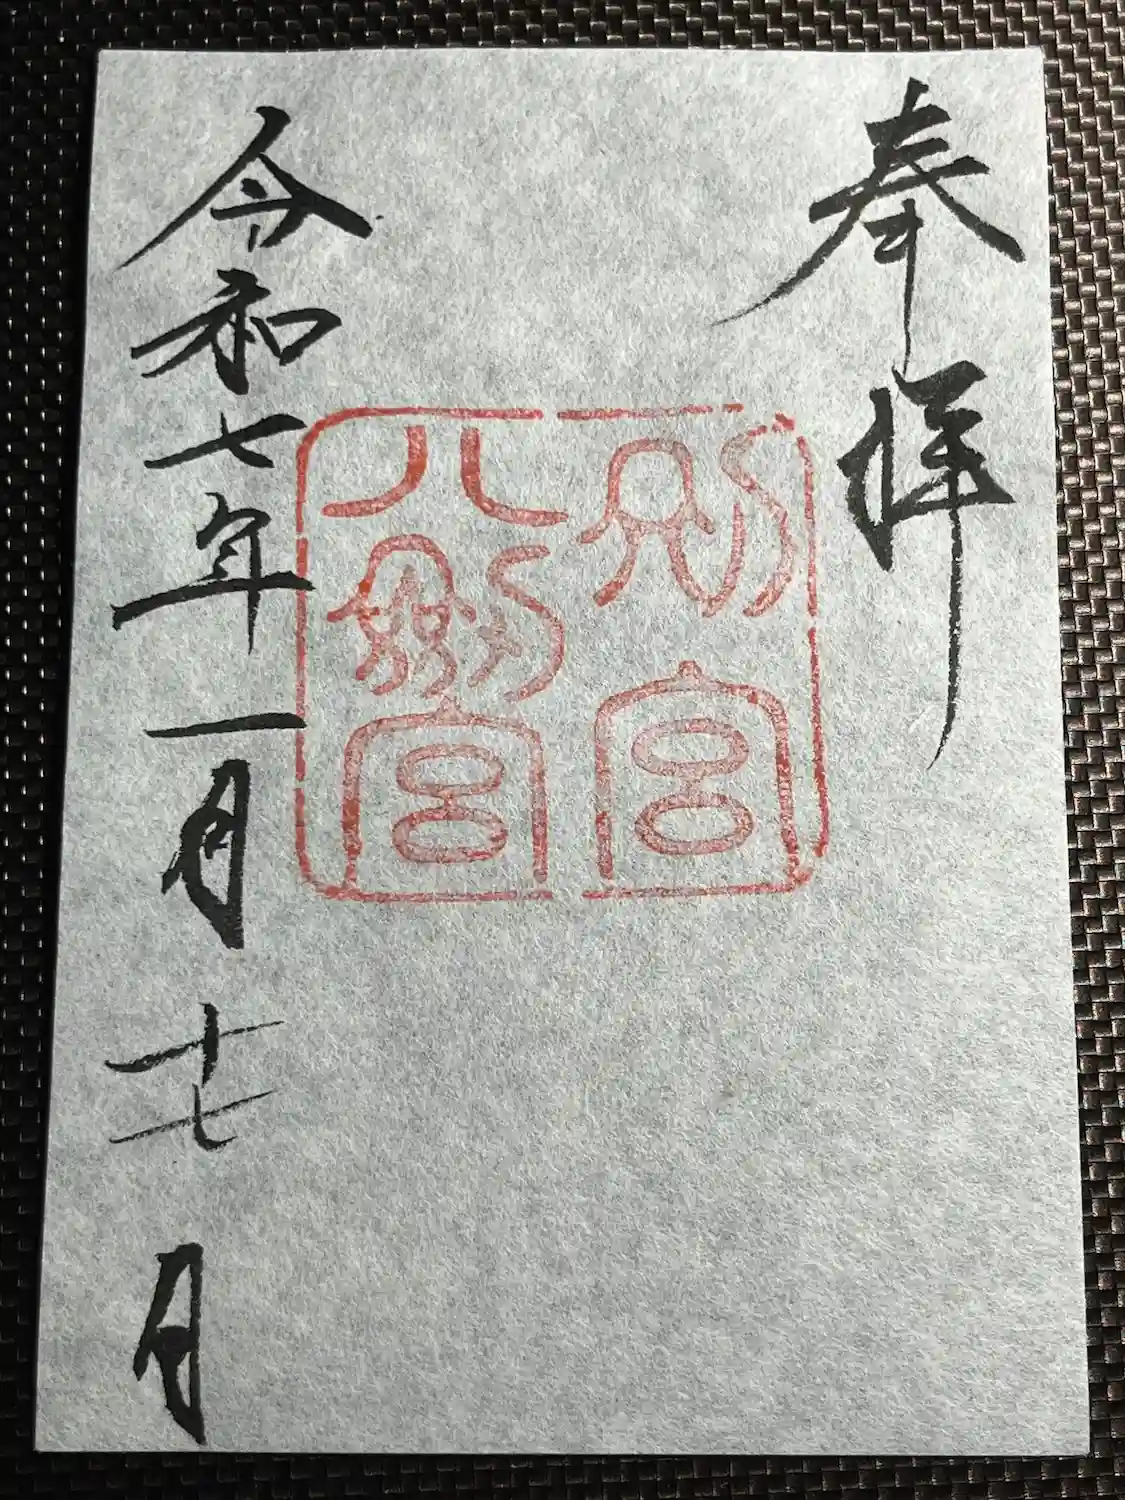 奉拝
別宮
八劔宮
令和七年一月十七日